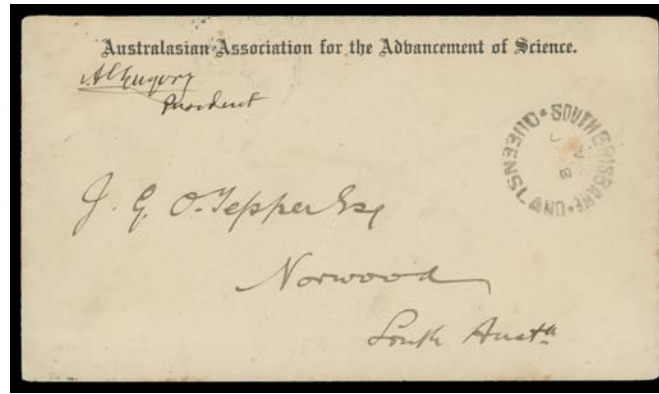 Australasian Association for the Advancement of Science.
A C Gregory
President
SOUTH BRISBANE
QUEENSLAND
J. G. O. Tepper Esq
Norwood
South Austª